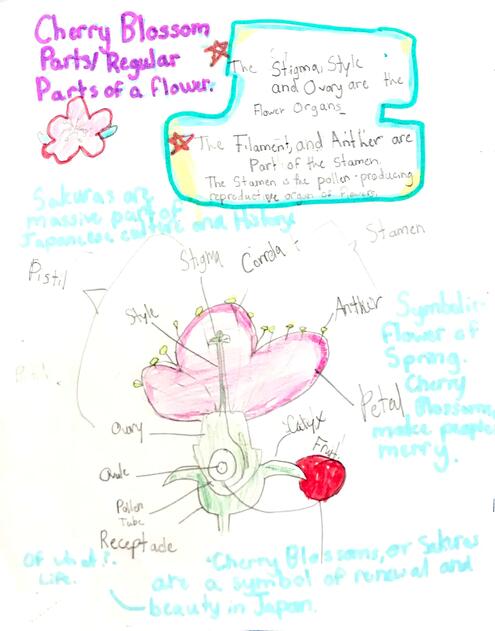 Cherry Blossom
Parts/Regular
Parts of a flower.
The Stigma, Style
and Ovary are the
Flower Organs
The Filament, and Anther are
Part of the Stamen.
The Stamen is the pollen-producing
reproductive organ of Flowers.
Sakuras are
massive part of
Japanese culture and History
Stamen
Stigma
Corrola :
Pistil
Style
Anther
Symbolic
flower of
Spring.
Cherry
Blossoms
make people
merry.
Petal
Ovary
Calyx
Fruit
Ovule
Pollen
Tube
Receptade
Of what?
Life.
Cherry Blossoms, or Sakuras
are a symbol of renewal and
beauty in Japan.